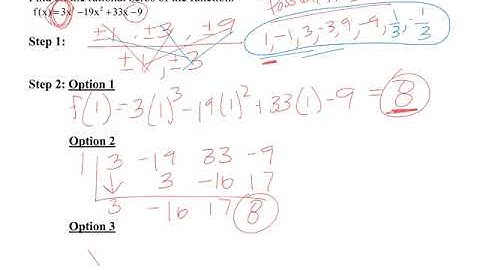 Find all the rational zeros of the function.
f(x)=3x³−19x²+33x−9
Step 1: ±1, ±3, ±9
±1, ±3
1,-1,3,-3,9,-9,1/3,-1/3
Step 2: Option 1
f(1)=3(1)³-19(1)²+33(1)-9 = 8
Option 2
1 3 -19 33 -9
3 -16 17
3 -16 17 8
Option 3